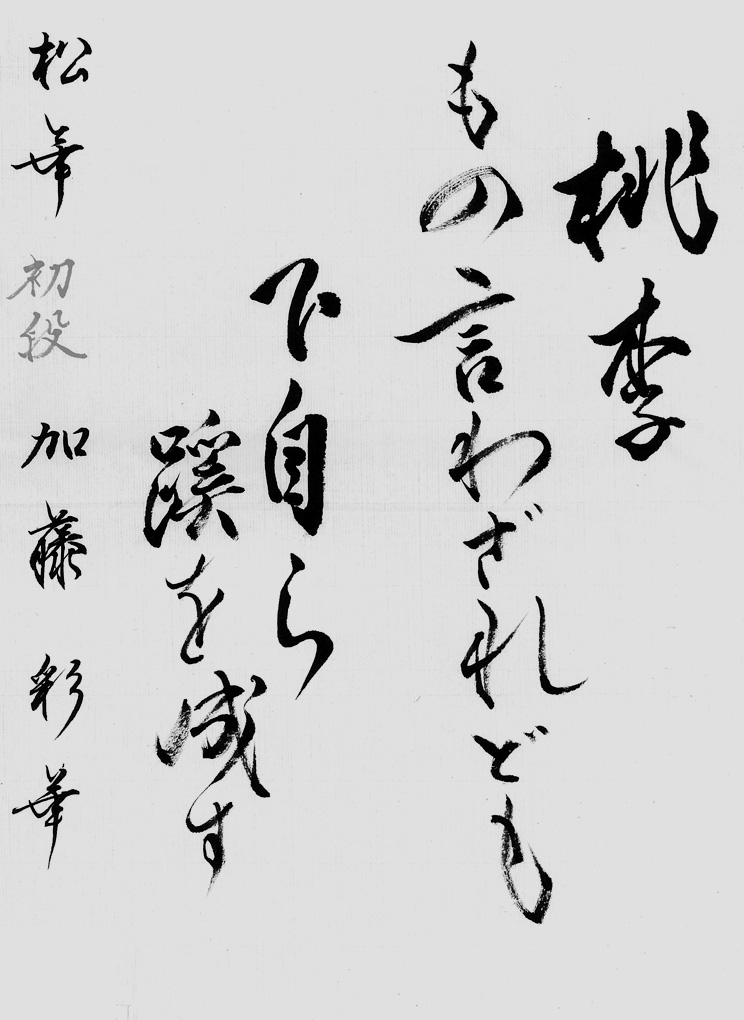 桃李
もの言わざれども
下自ら
蹊を成す
松華 初段 加藤彩華